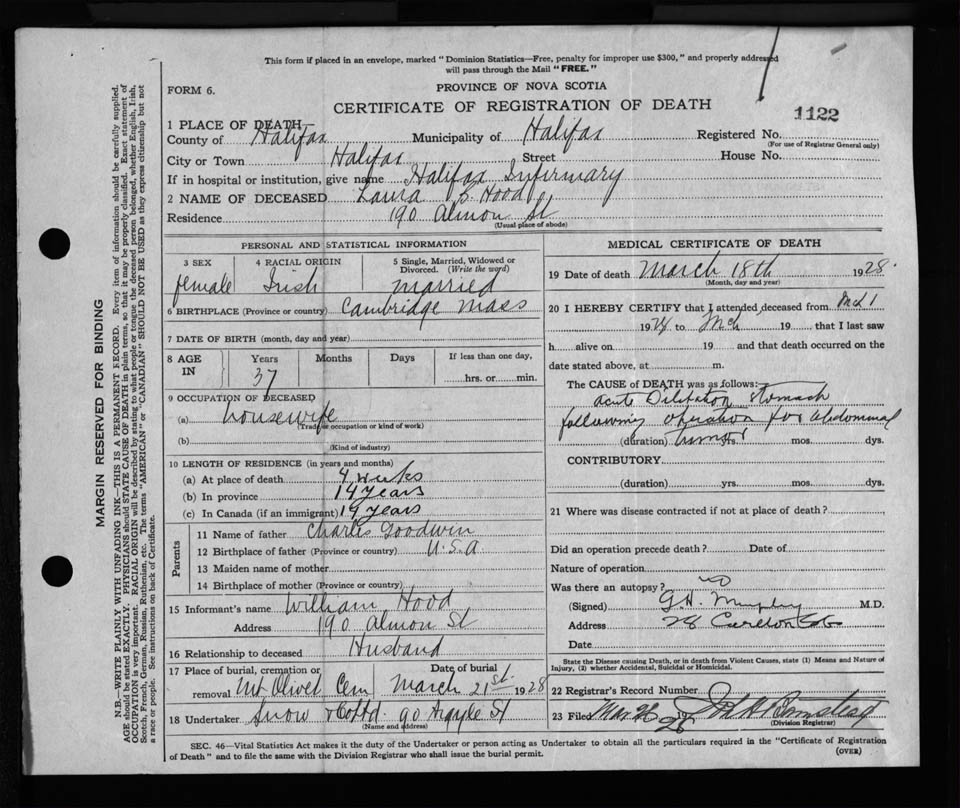 This form if placed in an envelope, marked "Dominion Statistics—Free, penalty for improper use $300," and properly addressed
will pass through the Mail "FREE."
FORM 6.
PROVINCE OF NOVA SCOTIA
CERTIFICATE OF REGISTRATION OF DEATH
1122
1 PLACE OF DEATH—
County of Halifax Municipality of Halifax Registered No.
(For use of Registrar General only)
City or Town Halifax Street House No.
If in hospital or institution, give name Halifax Infirmary
2 NAME OF DECEASED Laura S. Hood
Residence 190 Almon St
(Usual place of abode)
PERSONAL AND STATISTICAL INFORMATION
3 SEX 4 RACIAL ORIGIN 5 Single, Married, Widowed or
Divorced. (Write the word)
female Irish married
6 BIRTHPLACE (Province or country) Cambridge Mass
7 DATE OF BIRTH (month, day and year)
8 AGE IN Years Months Days If less than one day,
37 hrs. or min.
9 OCCUPATION OF DECEASED
(a) housewife
(Trade or occupation or kind of work)
(b)
(Kind of industry)
10 LENGTH OF RESIDENCE (in years and months)
(a) At place of death 4 weeks
(b) In province 14 years
(c) In Canada (if an immigrant) 19 years
Parents
11 Name of father Charles Goodwin
12 Birthplace of father (Province or country) U.S.A
13 Maiden name of mother
14 Birthplace of mother (Province or country)
15 Informant's name William Hood
Address 190 Almon St
16 Relationship to deceased Husband
17 Place of burial, cremation or Date of burial
removal Mt Olivet Cem March 21st. 1928
18 Undertaker Snow & Co Ltd 90 Argyle St
(Name and address)
MEDICAL CERTIFICATE OF DEATH
19 Date of death March 18th 1928.
(Month, day and year)
20 I HEREBY CERTIFY that I attended deceased from Mch 1
1928 to Mch 19 that I last saw
h alive on 19 and that death occurred on the
date stated above, at m.
The CAUSE of DEATH was as follows:
acute Dilitation stomach
following operation for abdominal
(duration) tumor yrs. mos. dys.
CONTRIBUTORY
(duration) yrs. mos. dys.
21 Where was disease contracted if not at place of death?
Did an operation precede death? Date of
Nature of operation
Was there an autopsy? no
(Signed) G.H. Murphy M.D.
Address 28 Carleton St
Date
State the Disease causing Death, or in death from Violent Causes, state (1) Means and Nature of
Injury, (2) whether Accidental, Suicidal or Homicidal.
22 Registrar's Record Number
23 Filed Mar 26 1928
(Division Registrar)
SEC. 46—Vital Statistics Act makes it the duty of the Undertaker or person acting as Undertaker to obtain all the particulars required in the "Certificate of Registration
of Death" and to file the same with the Division Registrar who shall issue the burial permit. (OVER)
MARGIN RESERVED FOR BINDING
N.B.—WRITE PLAINLY WITH UNFADING INK—THIS IS A PERMANENT RECORD. Every item of information should be carefully supplied.
AGE should be stated EXACTLY. PHYSICIANS should STATE CAUSE OF DEATH in plain terms, so that it may be properly classified. Exact statement of
OCCUPATION is very important. RACIAL ORIGIN will be described by stating to what people or tongue the deceased person belonged, whether English, Irish,
Scotch, French, German, Russian, Ruthenian, etc. The terms "AMERICAN" or "CANADIAN" SHOULD NOT BE USED as they express citizenship but not
a race or people. See instructions on back of Certificate.